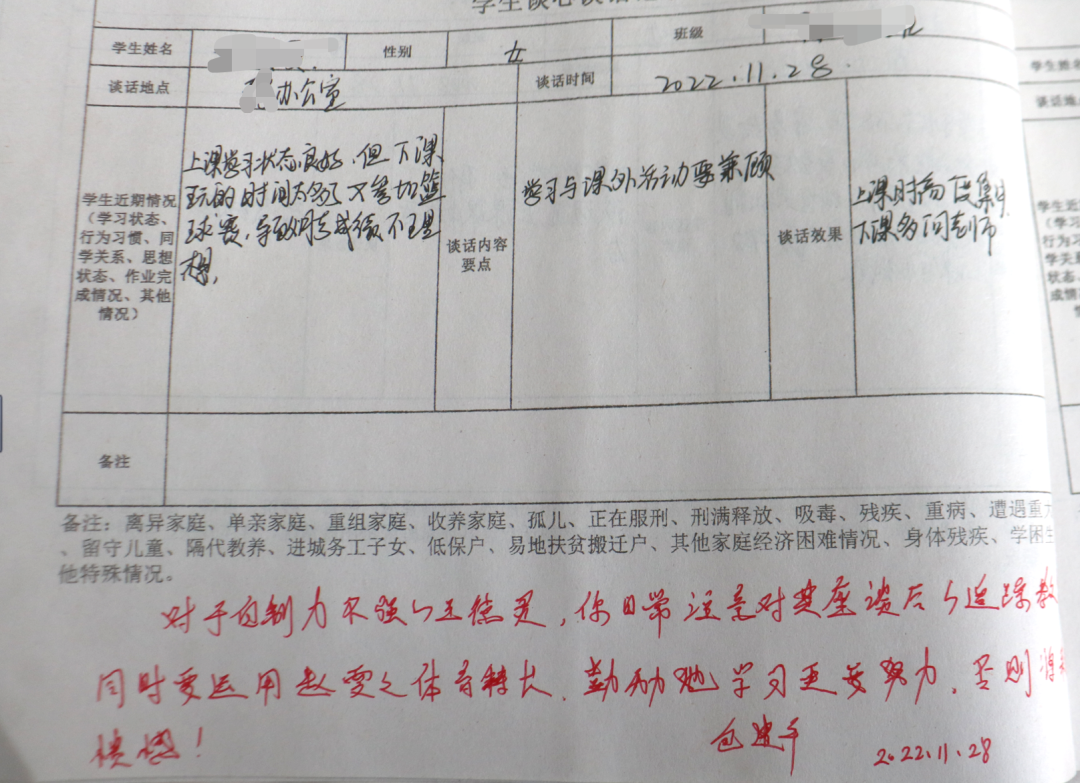 学生谈心谈话
学生姓名
性别 女
班级
谈话地点 办公室
谈话时间 2022.11.28.
学生近期情况
(学习状态、
行为习惯、同
学关系、思想
状态、作业完
成情况、其他
情况)
上课学习状态良好,但下课
玩的时间太多,又参加篮
球赛,导致期考成绩不理
想,
谈话内容
要点
学习与课外活动要兼顾
谈话效果
上课时高度集中
下课多问老师
备注
备注:离异家庭、单亲家庭、重组家庭、收养家庭、孤儿、正在服刑、刑满释放、吸毒、残疾、重病、遭遇重
、留守儿童、隔代教养、进城务工子女、低保户、易地扶贫搬迁户、其他家庭经济困难情况、身体残疾、学困生
他特殊情况。
对于自制力不强 你日常注意对其座谈后 追踪教
同时要运用 之体育特长,勤动她学习更要努力,否则
2022.11.28
学生姓名
谈话地
学生近
(学习
行为习
学关系
状态、
成情